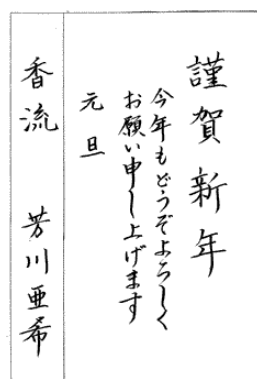 謹賀新年
今年もどうぞよろしく
お願い申し上げます
元旦
香流 芳川亜希